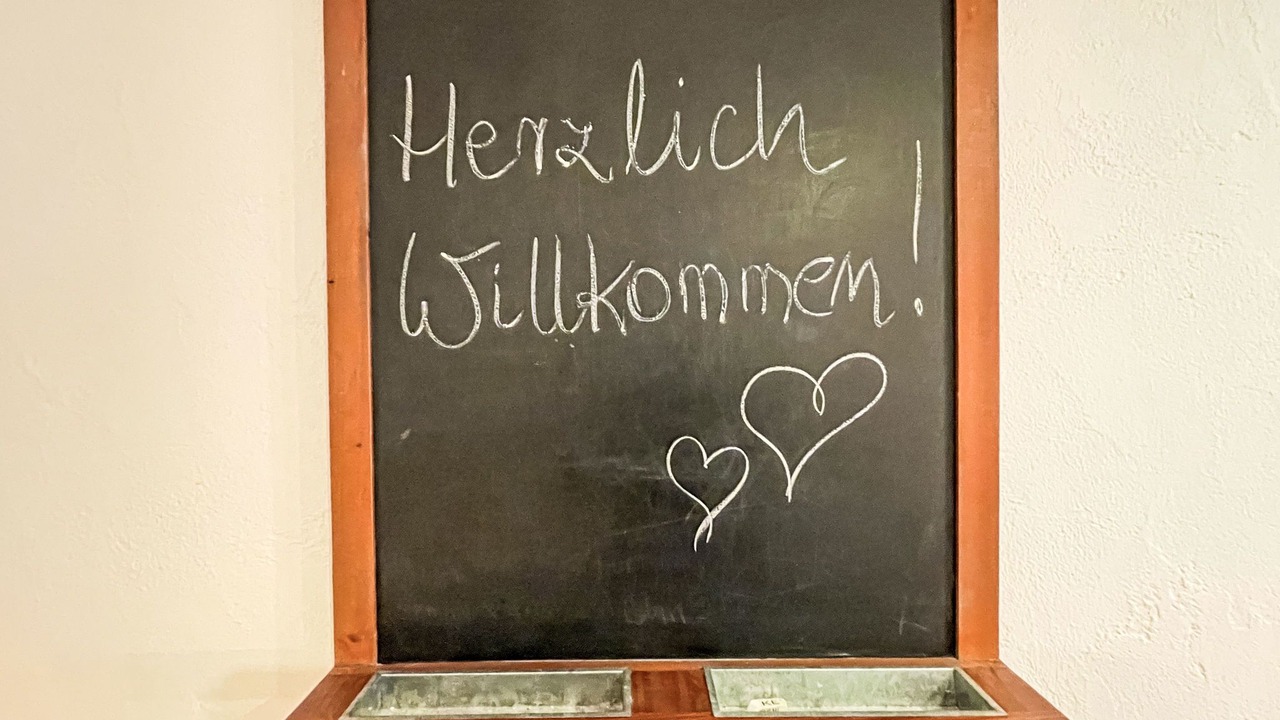 Herzlich
Willkommen!